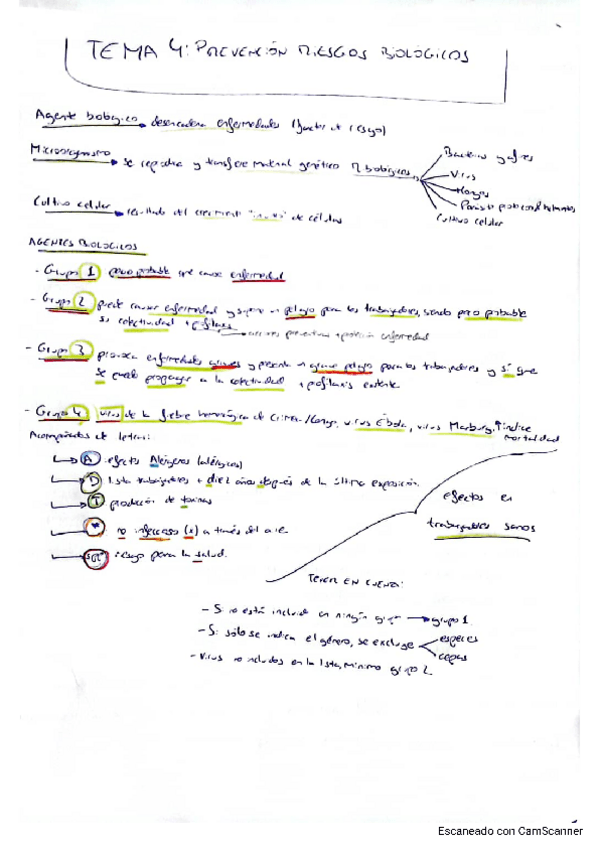 TEMA 4: PREVENCIÓN RIESGOS BIOLÓGICOS
Agente biologico → desencadena enfermedades (factor de riesgo)
Microorganismo → se reproduce y transfiere material genético R biológicos
Bacterias y afines
Virus
Hongos
Parásito protozoos/helmintos
Cultivo celular
Cultivo celular → resultado del crecimiento "in vitro" de células
AGENTES BIOLÓGICOS
- Grupo 1 poco probable que cause enfermedad
- Grupo 2 puede causar enfermedad y supone un peligro para los trabajadores, siendo poco probable
su colectividad + profilaxis
acciones preventivas aparición enfermedad
- Grupo 3 provoca enfermedades graves y presenta un grave peligro para los trabajadores y sí que
se puede propagar a la colectividad + profilaxis existente
- Grupo 4 virus de la fiebre hemorrágica de Crimea/Congo, virus Ébola, virus Marburg, ↑ índice
mortalidad
Acompañados de letras:
→ A efectos Alérgenos (alérgicos)
→ D lista trabajadores + diez años después de la última exposición.
→ T producción de toxinas
→ * no infeccioso (x) a través del aire
→ riesgo para la salud.
efectos en
trabajadores sanos
TENER EN CUENTA:
- Si no está incluido en ningún grupo → grupo 1
- Si sólo se indica el género, se excluye
especies
cepas
- Virus no incluidos en la lista, mínimo grupo 2
Escaneado con CamScanner